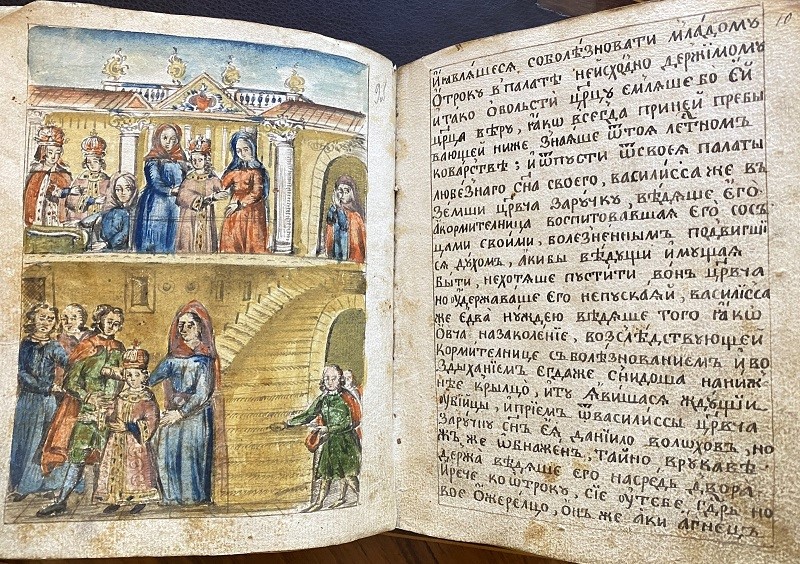 91
10
И҆ꙗвлѧ́шесѧ соболѣ́зновати мла́дому
Ѻ҆́троку в пала́тѣ неисхо́дно держи́мому
и҆ та́ко ѡ҆вольсти̑ цр҃цꙋ е҆млѧше бо е҆й
цр҃ца вѣ́рꙋ, ꙗ҆́кѡ всегда̀ при не́й пребы
вающей нижѐ зна́ѧше ѿ тоѧ̀ ле́тном
кова́рствѣ: и҆ ѿпꙋсти̑ ѿ своеѧ̀ пала́ты
любе́знаго сн҃а своего̀, васили́сса же въ
зе́мши цр҃вча за рꙋ́чкꙋ, ве́дѧше е҆го̀
а корми́телница воспито́вавшаѧ е҆го̀ сос
ца́ми свои́ми, болѣ́зненнымъ подви́гши
сѧ дꙋ́хомъ, а҆ки бы вѣ́дꙋщи и҆мꙋ́щаѧ
бы́ти, не хотѧ́ше пꙋсти́ти во́нъ цр҃вча
но ᲂу҆держава́ше е҆го̀ не пꙋска́ѧй, васили́сса
же е҆два̀ нꙋ́ждею ве́дѧше того̀ ꙗ҆́кѡ
ѻ҆вча на заколе́нїе, возслѣ́дствꙋющей
корми́телнице съ болѣ́знованиемъ и҆ во
здыха́нїемъ е҆гда́же снидо́ша на ни́ж
нѣе крылцо̀, и҆ тꙋ̀ ꙗ҆ви́шасѧ ждꙋ́щїи
ᲂу҆бі́йцы, и҆ прїе́мъ ѿ васили́ссы цр҃вча
за рꙋ́чкꙋ сн҃ъ еѧ̀ дани́ло волѡховъ, но
жъ же ѡ҆бнаже́нъ, та́йно в рꙋкавѣ̀
держа̀ ве́дѧше е҆го̀ на средъ двора̀
и҆ речѐ ко ѻ҆́трокꙋ, сїѐ ᲂу҆ тебѐ, гдⷭ҇рь но
вое ѻ҆жере́лцо, ѻ҆нъ же а҆́ки а҆́гнецъ